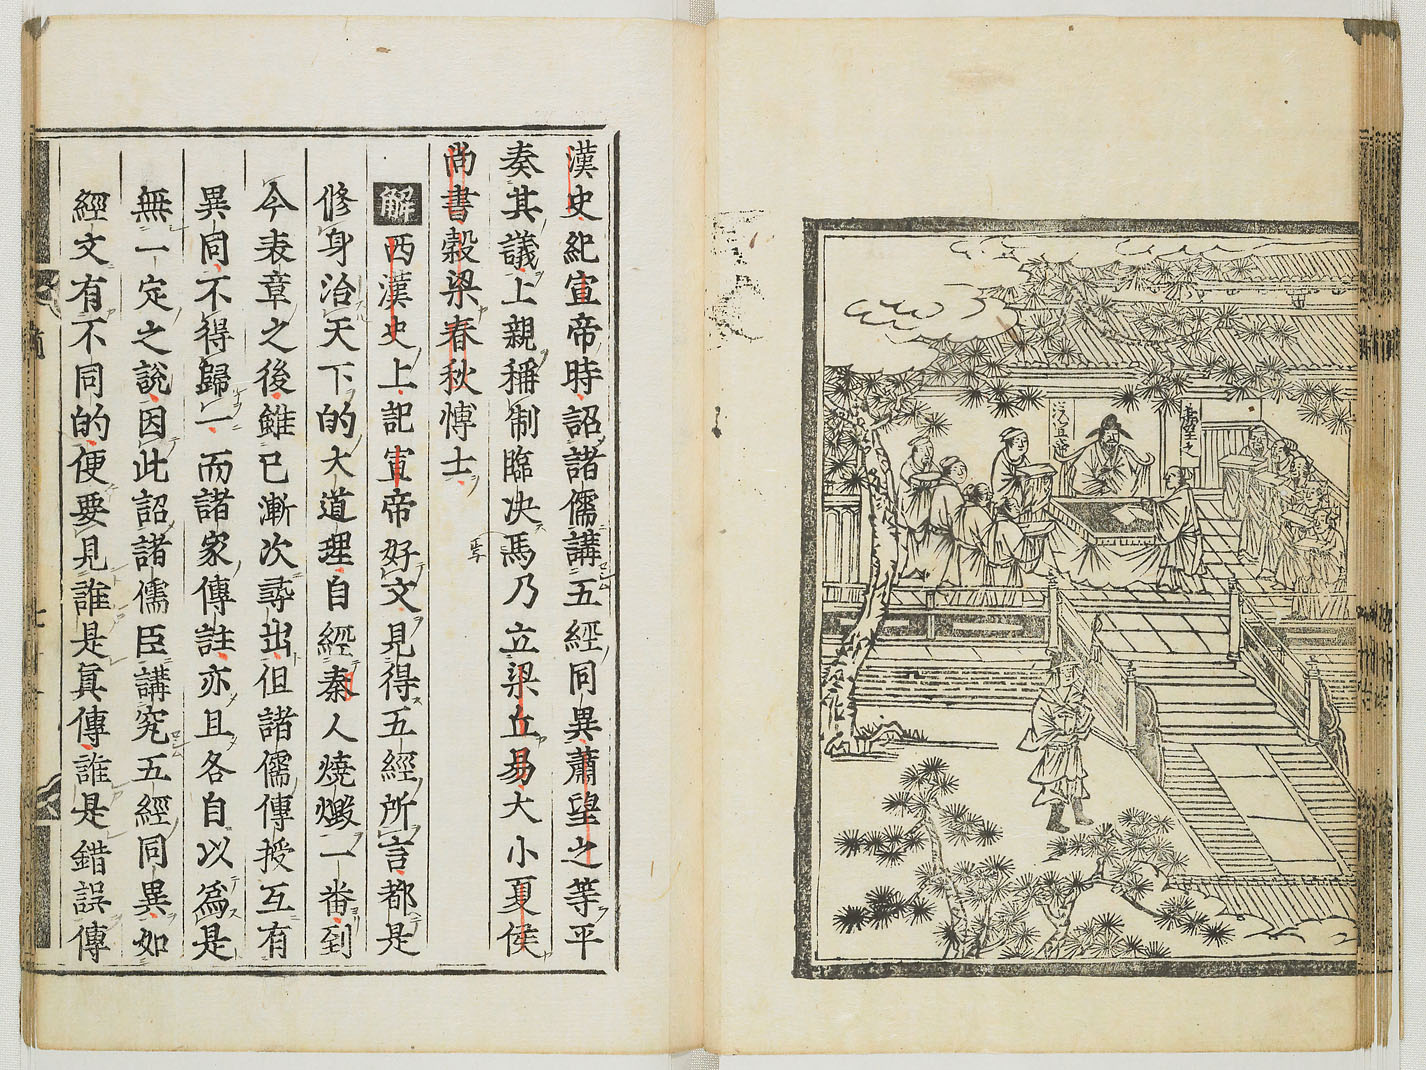 漢宣帝
蕭望之
漢史紀宣帝時詔諸儒講五經同異蕭望之等平
奏其議上親稱制臨决焉乃立梁丘易大小夏侯
尚書穀梁春秋愽士
解西漢史上記宣帝好文見得五經所言都是
修身治天下的大道理自經秦人燒燬一番到
今表章之後雖已漸次尋出但諸儒傳授互有
異同不得歸一而諸家傳註亦且各自以為是
無一定之說因此詔諸儒臣講究五經同異如
經文有不同的便要見誰是真傳誰是錯誤傳